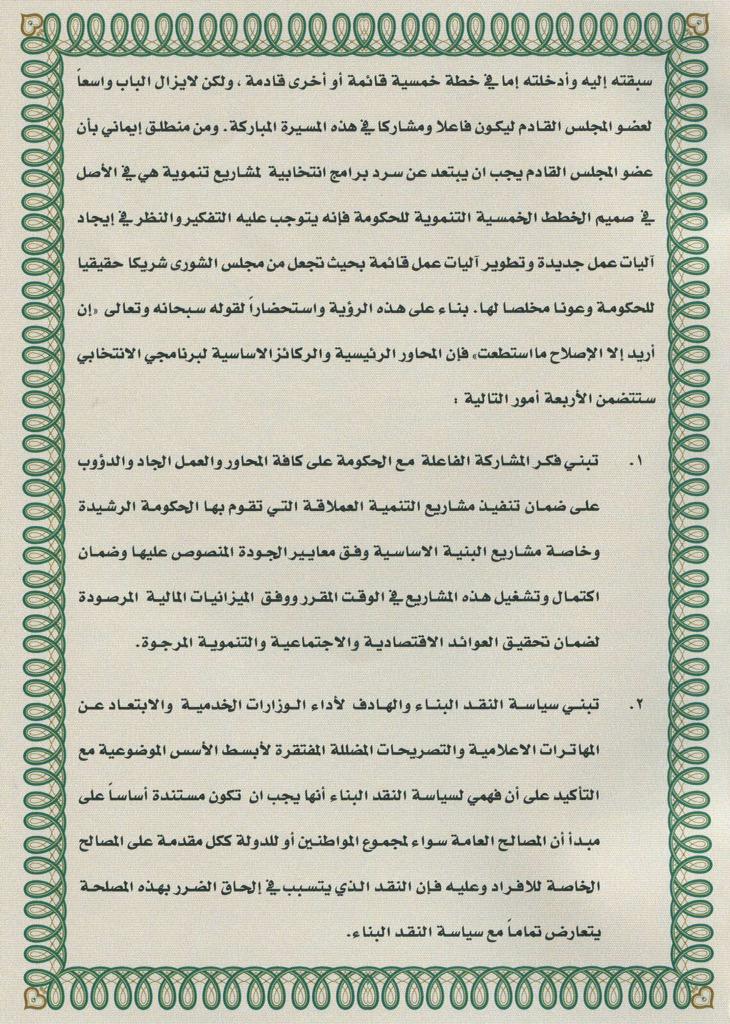 سبقته إليه وأدخلته إما في خطة خمسية قائمة أو أخرى قادمة ، ولكن لايزال الباب واسعاً
لعضو المجلس القادم ليكون فاعلا ومشاركا في هذه المسيرة المباركة. ومن منطلق إيماني بأن
عضو المجلس القادم يجب ان يبتعد عن سرد برامج انتخابية لمشاريع تنموية هي في الأصل
في صميم الخطط الخمسية التنموية للحكومة فإنه يتوجب عليه التفكير والنظر في إيجاد
آليات عمل جديدة وتطوير آليات عمل قائمة بحيث تجعل من مجلس الشورى شريكا حقيقيا
للحكومة وعونا مخلصا لها. بناء على هذه الرؤية واستحضاراً لقوله سبحانه وتعالى «إن
أريد إلا الإصلاح ما استطعت» فإن المحاور الرئيسية والركائز الاساسية لبرنامجي الانتخابي
ستتضمن الأربعة أمور التالية :
١. تبني فكر المشاركة الفاعلة مع الحكومة على كافة المحاور والعمل الجاد والدؤوب
على ضمان تنفيذ مشاريع التنمية العملاقة التي تقوم بها الحكومة الرشيدة
وخاصة مشاريع البنية الاساسية وفق معايير الجودة المنصوص عليها وضمان
اكتمال وتشغيل هذه المشاريع في الوقت المقرر ووفق الميزانيات المالية المرصودة
لضمان تحقيق العوائد الاقتصادية والاجتماعية والتنموية المرجوة.
٢. تبني سياسة النقد البناء والهادف لأداء الوزارات الخدمية والابتعاد عن
المهاترات الاعلامية والتصريحات المضللة المفتقرة لأبسط الأسس الموضوعية مع
التأكيد على أن فهمي لسياسة النقد البناء أنها يجب ان تكون مستندة أساساً على
مبدأ أن المصالح العامة سواء لمجموع المواطنين أو للدولة ككل مقدمة على المصالح
الخاصة للافراد وعليه فإن النقد الذي يتسبب في إلحاق الضرر بهذه المصلحة
يتعارض تماماً مع سياسة النقد البناء.